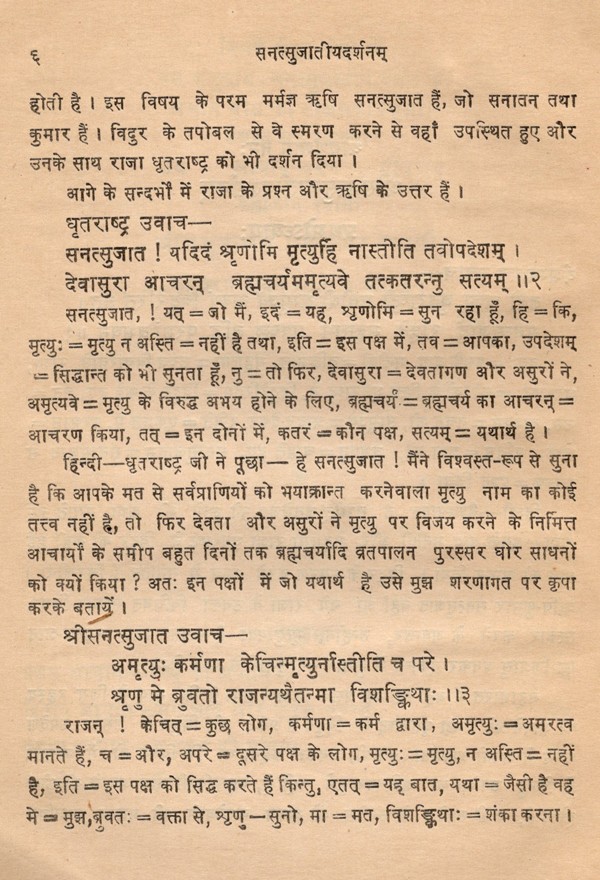 ६ सनत्सुजातीयदर्शनम्
होती है । इस विषय के परम मर्मज्ञ ऋषि सनत्सुजात हैं, जो सनातन तथा
कुमार हैं । विदुर के तपोबल से वे स्मरण करने से वहाँ उपस्थित हुए और
उनके साथ राजा धृतराष्ट्र को भी दर्शन दिया ।
आगे के सन्दर्भों में राजा के प्रश्न और ऋषि के उत्तर हैं ।
धृतराष्ट्र उवाच—
सनत्सुजात ! यदिदं श्रृणोमि मृत्युर्हि नास्तीति तवोपदेशम् ।
देवासुरा आचरन् ब्रह्मचर्यममृत्यवे तत्कतरन्नु सत्यम् ॥२
सनत्सुजात, ! यत् = जो मैं, इदं = यह, श्रृणोमि = सुन रहा हूँ, हि = कि,
मृत्युः = मृत्यु न अस्ति = नहीं है तथा, इति = इस पक्ष में, तव = आपका, उपदेशम्
= सिद्धान्त को भी सुनता हूँ, नु = तो फिर, देवासुरा = देवतागण और असुरों ने,
अमृत्यवे = मृत्यु के विरुद्ध अभय होने के लिए, ब्रह्मचर्यं = ब्रह्मचर्य का आचरन् =
आचरण किया, तत् = इन दोनों में, कतरं = कौन पक्ष, सत्यम् = यथार्थ है ।
हिन्दी—धृतराष्ट्र जी ने पूछा— हे सनत्सुजात ! मैंने विश्वस्त-रूप से सुना
है कि आपके मत से सर्वप्राणियों को भयाक्रान्त करनेवाला मृत्यु नाम का कोई
तत्त्व नहीं है, तो फिर देवता और असुरों ने मृत्यु पर विजय करने के निमित्त
आचार्यों के समीप बहुत दिनों तक ब्रह्मचर्यादि व्रतपालन पुरस्सर घोर साधनों
को क्यों किया ? अतः इन पक्षों में जो यथार्थ है उसे मुझ शरणागत पर कृपा
करके बतायें ।
श्रीसनत्सुजात उवाच—
अमृत्युः कर्मणा केचिन्मृत्युर्नास्तीति च परे ।
श्रृणु मे ब्रुवतो राजन्यथैतन्मा विशङ्किथाः ॥३
राजन् ! केचित् = कुछ लोग, कर्मणा = कर्म द्वारा, अमृत्युः = अमरत्व
मानते हैं, च = और, अपरे = दूसरे पक्ष के लोग, मृत्युः = मृत्यु, न अस्ति = नहीं
है, इति = इस पक्ष को सिद्ध करते हैं किन्तु, एतत् = यह बात, यथा = जैसी है वह
मे = मुझ,ब्रुवतः = वक्ता से, श्रृणु — सुनो, मा = मत, विशङ्किथाः = शंका करना ।